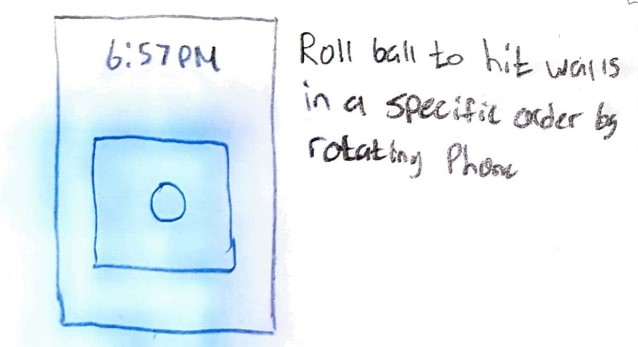 6:57PM
Roll ball to hit walls
in a specific order by
rotating Phone